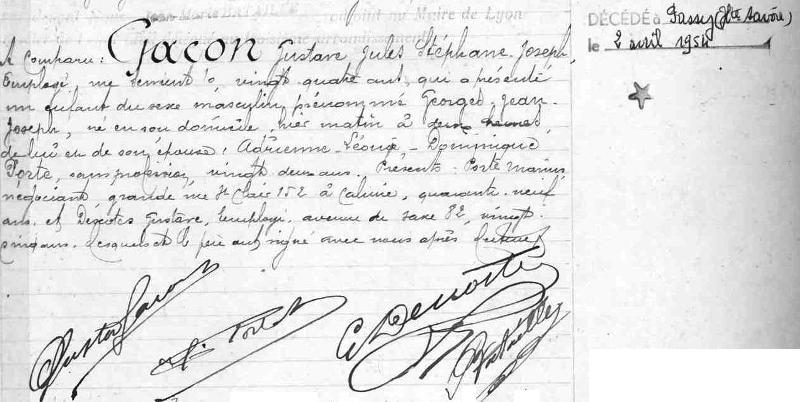 Jean Marie BATAILLE adjoint au Maire de Lyon
arrondissement
A Comparu: Gacon Gustave Jules Stéphane Joseph,
Employé, rue Servient 10, vingt quatre ans, qui a présenté
un enfant du sexe masculin, prénommé Georges-Jean-
Joseph, né en son domicile, hier matin à heures,
de lui et de son épouse: Adrienne-Léonie-Dominique
Porte, sans profession, vingt deux ans. Présents: Porte Marius
négociant, grande rue St Clair 152 à Caluire, quarante-neuf
ans. et Descotes Gustave, employé avenue de Saxe 82, vingt-
cinq ans. Lesquels et le père ont signé avec nous après lecture
Gustave Gacon
Porte
G Descotes
Bataille
DÉCÉDÉ à Passy (Hte Savoie)
le 2 avril 1954